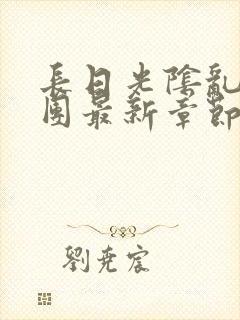 長日光陰亂
團最新章節
劉堯宸